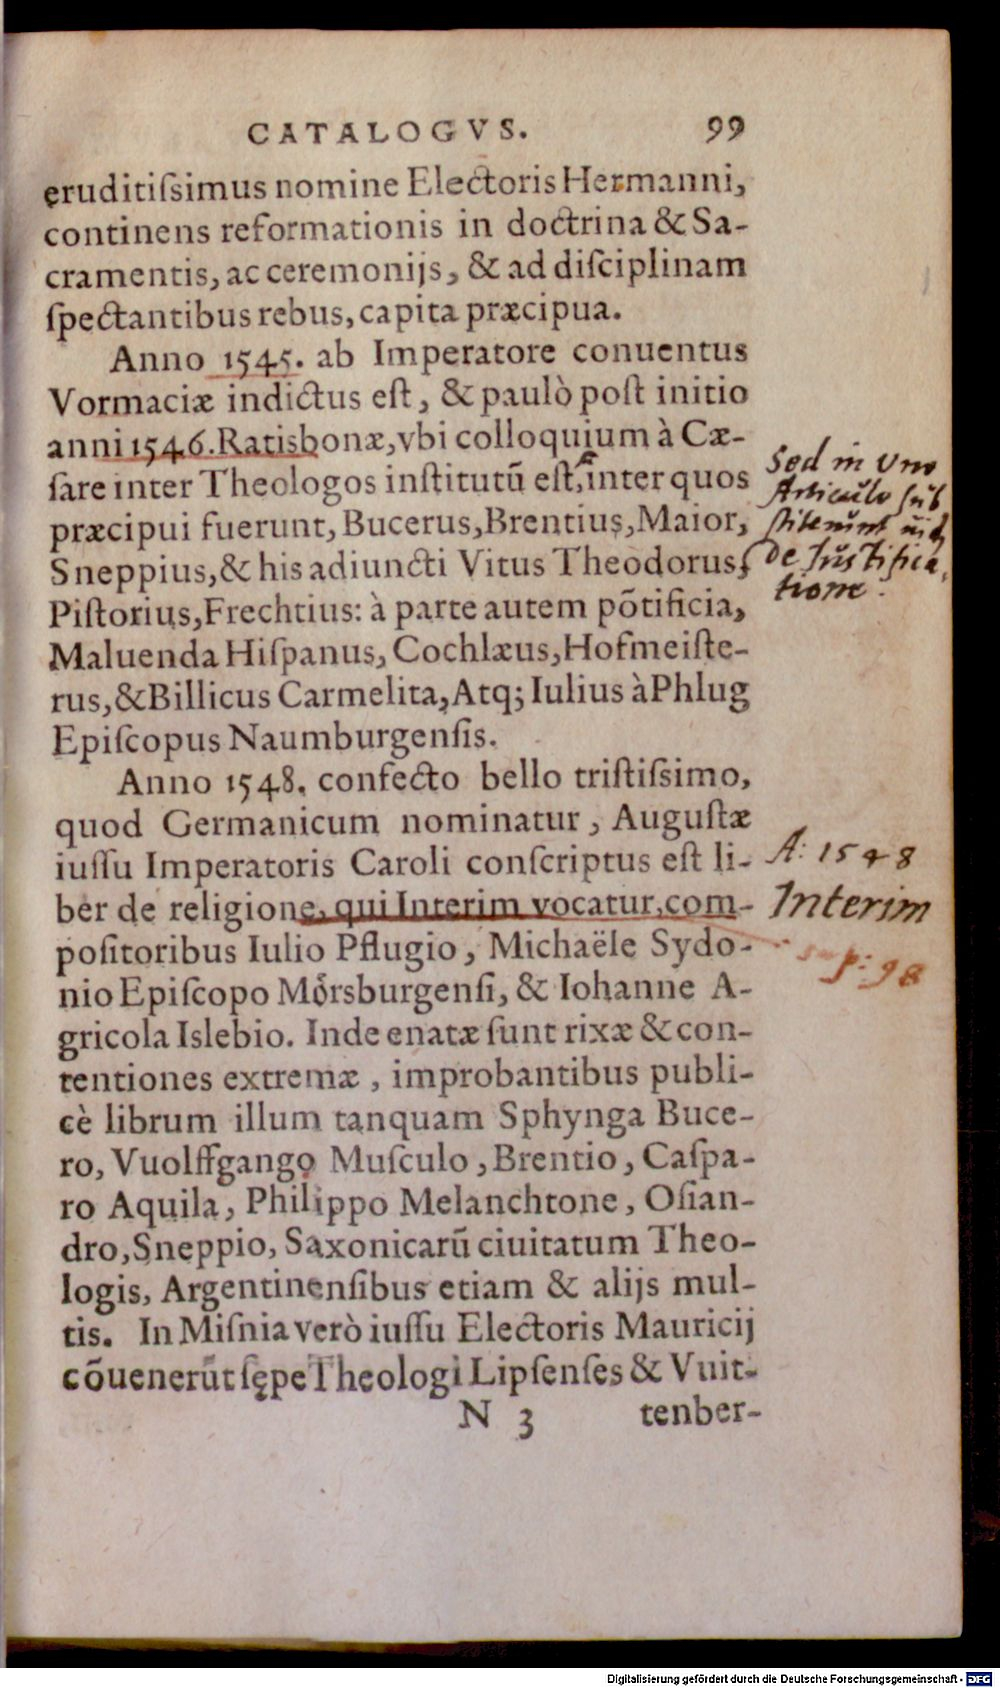 CATALOGVS. 99
eruditiſsimus nomine Electoris Hermanni,
continens reformationis in doctrina & Sa-
cramentis, ac ceremonijs, & ad diſciplinam
ſpectantibus rebus, capita præcipua.
Anno 1545. ab Imperatore conuentus
Vormaciæ indictus eſt, & paulò poſt initio
anni 1546. Ratisbonæ, vbi colloquium à Cæ-
ſare inter Theologos inſtitutū eſt, inter quos
præcipui fuerunt, Bucerus, Brentius, Maior,
Sneppius, & his adiuncti Vitus Theodorus,
Piſtorius, Frechtius: à parte autem pōtificia,
Maluenda Hiſpanus, Cochlæus, Hofmeiſte-
rus, & Billicus Carmelita, Atq; Iulius à Phlug
Epiſcopus Naumburgenſis.
Anno 1548. confecto bello triſtiſsimo,
quod Germanicum nominatur, Auguſtæ
iuſſu Imperatoris Caroli conſcriptus eſt li-
ber de religione, qui Interim vocatur, com-
poſitoribus Iulio Pflugio, Michaële Sydo-
nio Epiſcopo Mörsburgenſi, & Iohanne A-
gricola Islebio. Inde enatæ ſunt rixæ & con-
tentiones extremæ, improbantibus publi-
cè librum illum tanquam Sphynga Buce-
ro, Vuolffgango Muſculo, Brentio, Caſpa-
ro Aquila, Philippo Melanchtone, Oſian-
dro, Sneppio, Saxonicarū ciuitatum Theo-
logis, Argentinenſibus etiam & alijs mul-
tis. In Miſnia verò iuſſu Electoris Mauricij
cōuenerūt ſępe Theologi Lipſenſes & Vuit-
N 3 tenber-
Sed in Uno
Articulo ſub
ſtiterunt
de Iuſtifica
tione.
A: 1548
Interim
p: 98
Digitalisierung gefördert durch die Deutsche Forschungsgemeinschaft - DFG